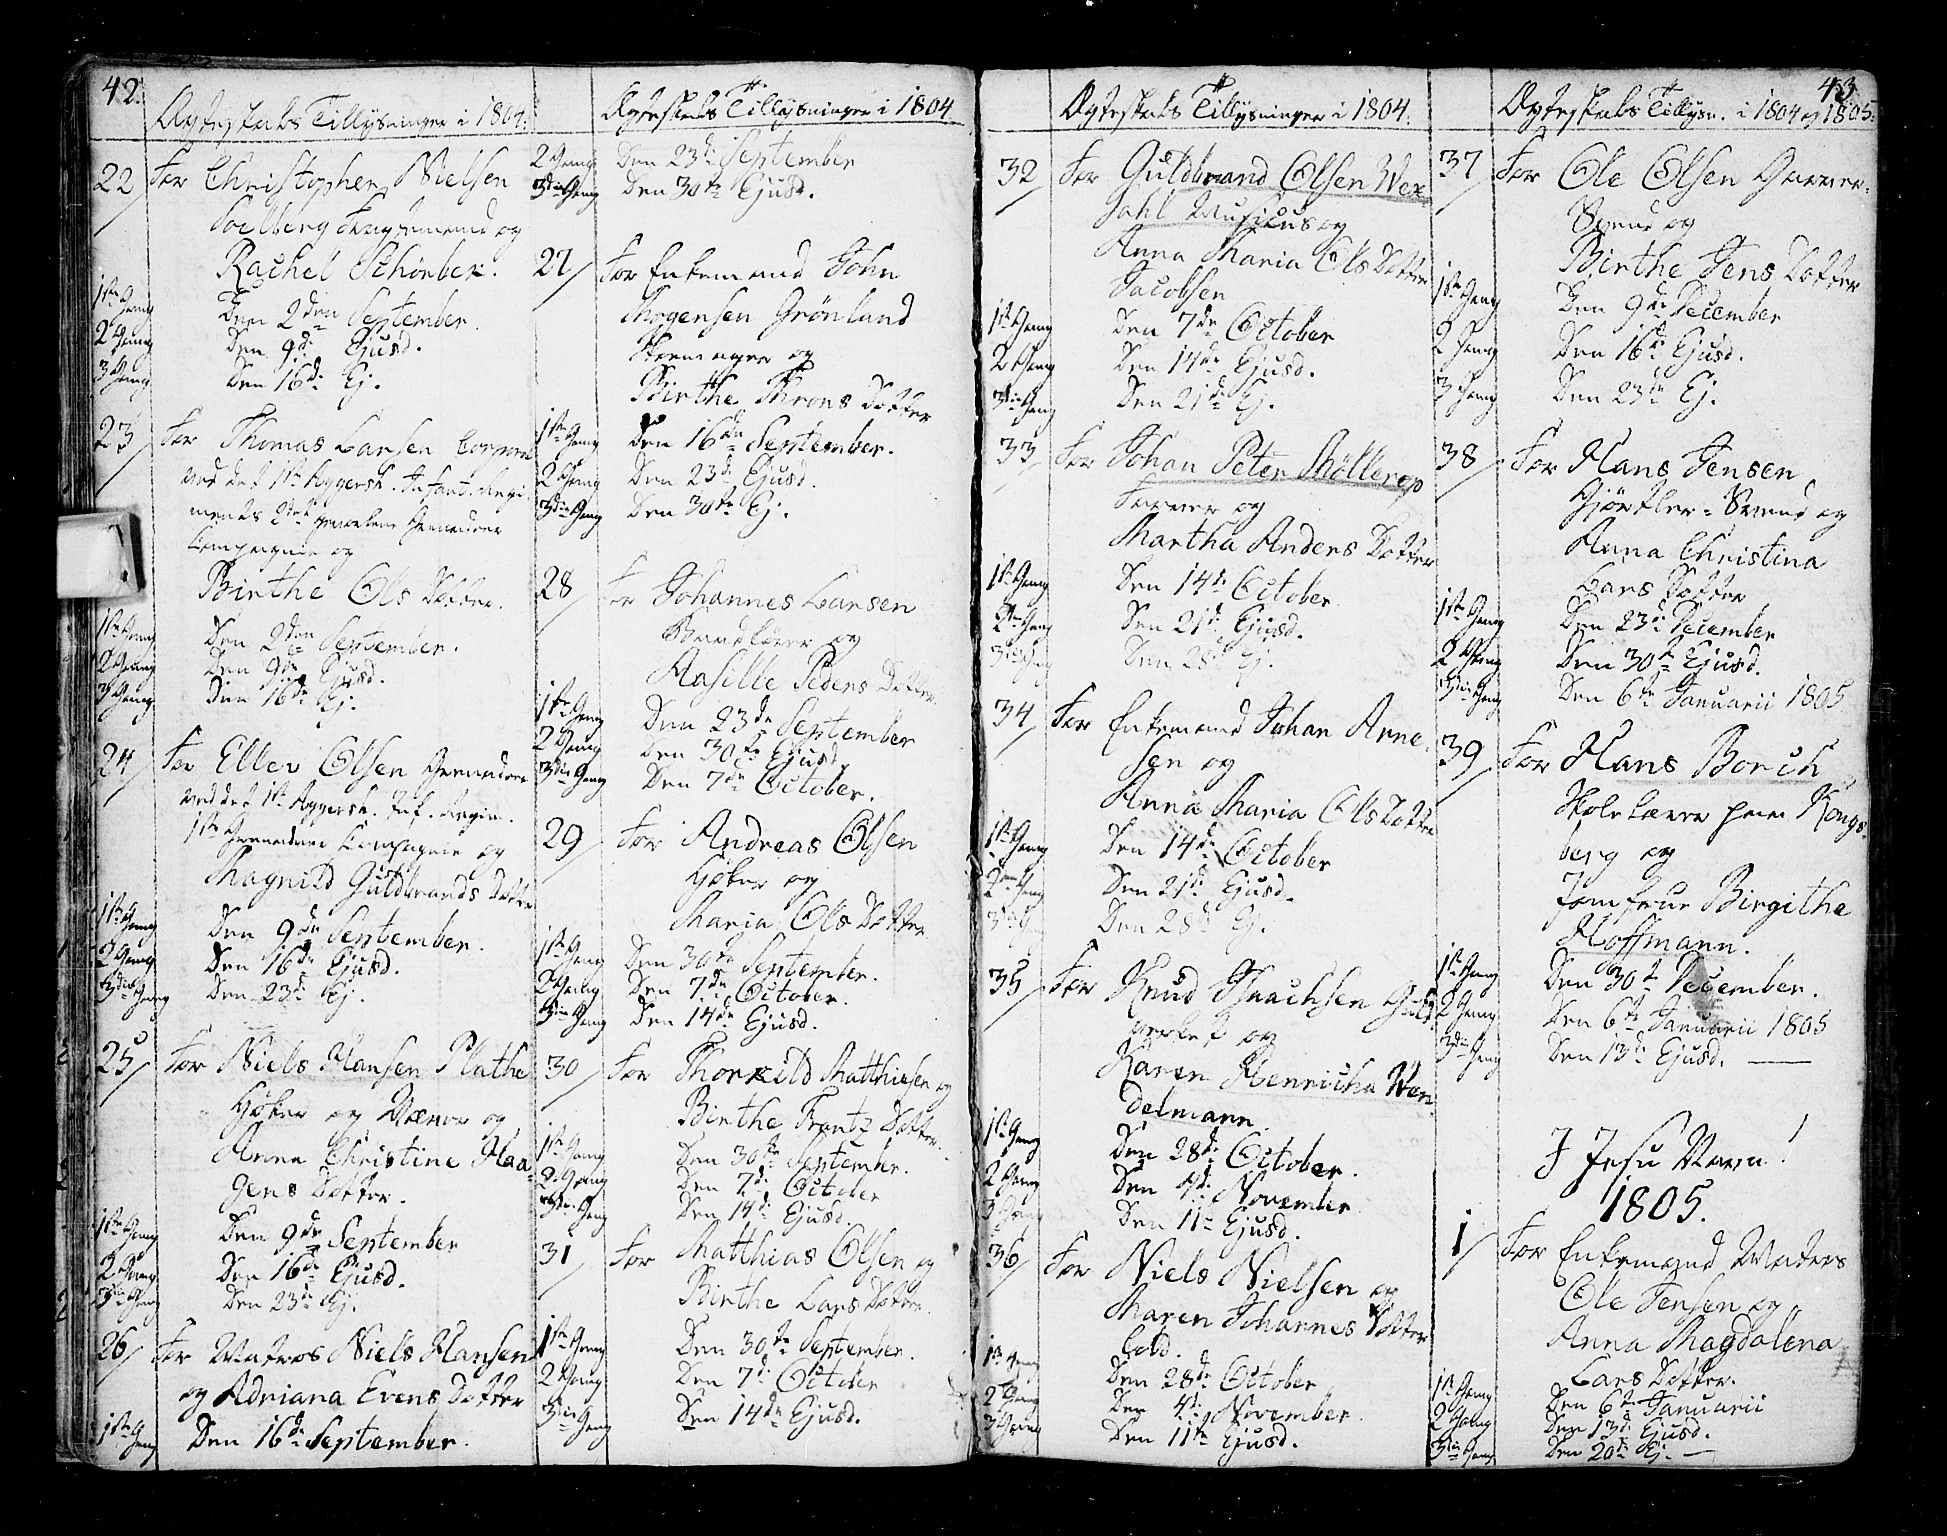 42.
Ægteskabs Tillysninger i 1804.
22 For Christopher Nielsen
Soelberg Fragtemand og
Rachel Schönbek.
1ste Gang Den 2den September.
2 Gang Den 9de Ejusd.
3 Gang Den 16de Ej.
23 For Thomas Larsen Corporal
ved det 1ste Aggersh. Infant. Regi-
ments 2det Grenadeer
Compagnie og
Birthe Ols Dotter.
1ste Gang Den 2den September.
2 Gang Den 9de Ejusd.
3 Gang Den 16de Ej.
24 For Ellev Olsen Grenadeer
ved det 1ste Aggersh. Inf. Regim.
1ste Grenadeer Compagnie og
Magnild Guldbrands Dotter
1ste Gang Den 9de September.
2 Gang Den 16de Ejusd.
3die Gang Den 23de Ej.
25 For Niels Hansen Plathe
Höker og
Anna Christine Haa-
gens Dotter.
1ste Gang Den 9de September
2 Gang Den 16de Ejusd.
3die Gang Den 23de Ej.
26 For Matros Niels Hansen
og Adriana Evens Dotter
1ste Gang Den 16de September.
Ægteskabs Tillysninger i 1804.
2 Gang Den 23de September
3die Gang Den 30te Ejusd.
27 For Enkemand John
Mogensen Grönland
Skoemager og
Birthe Throns Dotter
1ste Gang Den 16de September.
2 Gang Den 23de Ejusd.
3die Gang Den 30te Ej.
28 For Johannes Larsen
og
Aaselle Peders Dotter
1ste Gang Den 23de September
2 Gang Den 30te Ejusd.
3die Gang Den 7de October.
29 For Andreas Olsen
Höker og
Maria Ols Dotter
1ste Gang Den 30te September.
2 Gang Den 7de October.
3die Gang Den 14de Ejusd.
30 For Thorkild Matthiesen og
Birthe Frantz Dotter.
1ste Gang Den 30te September.
2 Gang Den 7de October
3die Gang Den 14de Ejusd.
31 For Matthias Olsen og
Birthe Lars Dotter.
1ste Gang Den 30te September.
2 Gang Den 7de October
3die Gang Den 14de Ejusd.
Ægteskabs Tillysninger i 1804.
32 For Guldbrand Olsen Wex-
sahl Musicus og
Anna Maria Ols Dotter
Jacobsen
1ste Gang Den 7de October
2 Gang Den 14de Ejusd.
3die Gang Den 21de Ej.
33 For Johan Peter Möllerop
Farver og
Martha Anders Dotter
1ste Gang Den 14de October
2 Gang Den 21de Ejusd.
3die Gang Den 28de Ej.
34 For Enkemand Johan Arne-
sen og
Anna Maria Ols Dotter
1ste Gang Den 14de October
2den Gang Den 21de Ejusd.
3die G Den 28de Ej.
35 For Knud Isaachsen Guld-
og
Karen Henricha Wen-
delmann.
1ste Gang Den 28de October.
2 Gang Den 4de November
3 Gang Den 11te Ejusd.
36 For Niels Nielsen og
Maren Johannes Dotter
Lold.
1ste Gang Den 28de October
2 Gang Den 4de November.
3 Gang Den 11te Ejusd.
43.
Ægteskabs Tillysn. i 1804 og 1805.
37 For Ole Olsen Garver-
Svend og
Birthe Jens Dotter
1ste Gang Den 9de December
2 Gang Den 16de Ejusd.
3 Gang Den 23de Ej.
38 For Hans Jensen
Gjörtler-Svend og
Anna Christina
Lars Dotter
1ste Gang Den 23de December
2 Gang Den 30te Ejusd.
3die Gang Den 6te Januarii 1805
39 For Hans Borch
Skolelærer paa Kongs-
berg og
Jomfrue Birgithe
Hoffmann.
1ste Gang Den 30te December.
2 Gang Den 6te Januarii 1805
3die Gang Den 13de Ejusd.
I Jesu Navn!
1805.
1 For Enkemand Matros
Ole Jensen og
Anna Magdalena
Lars Dotter.
1ste Gang Den 6te Januarii
2 Gang Den 13de Ejusd.
3die Gang Den 20de Ej.